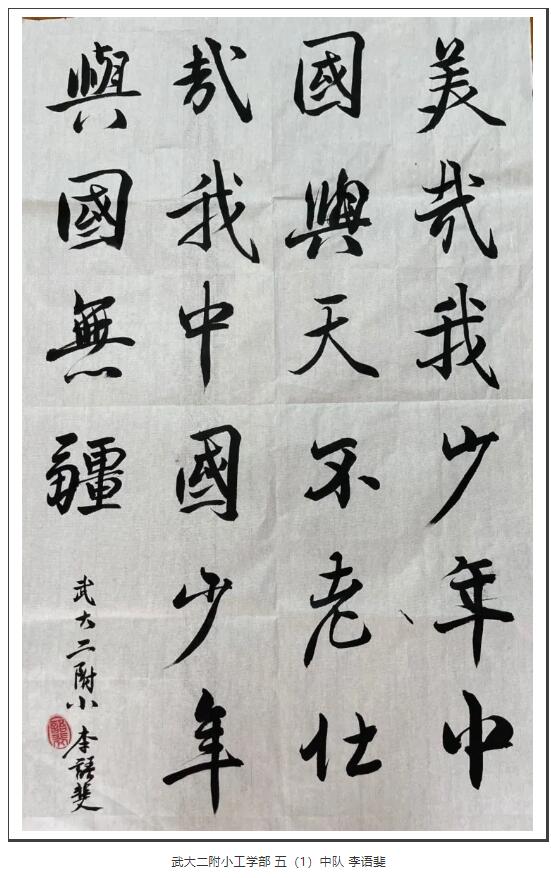 美哉我少年中
國與天不老仕
哉我中國少年
與國無疆
武大二附小 李語斐
語斐
武大二附小工学部 五（1）中队 李语斐